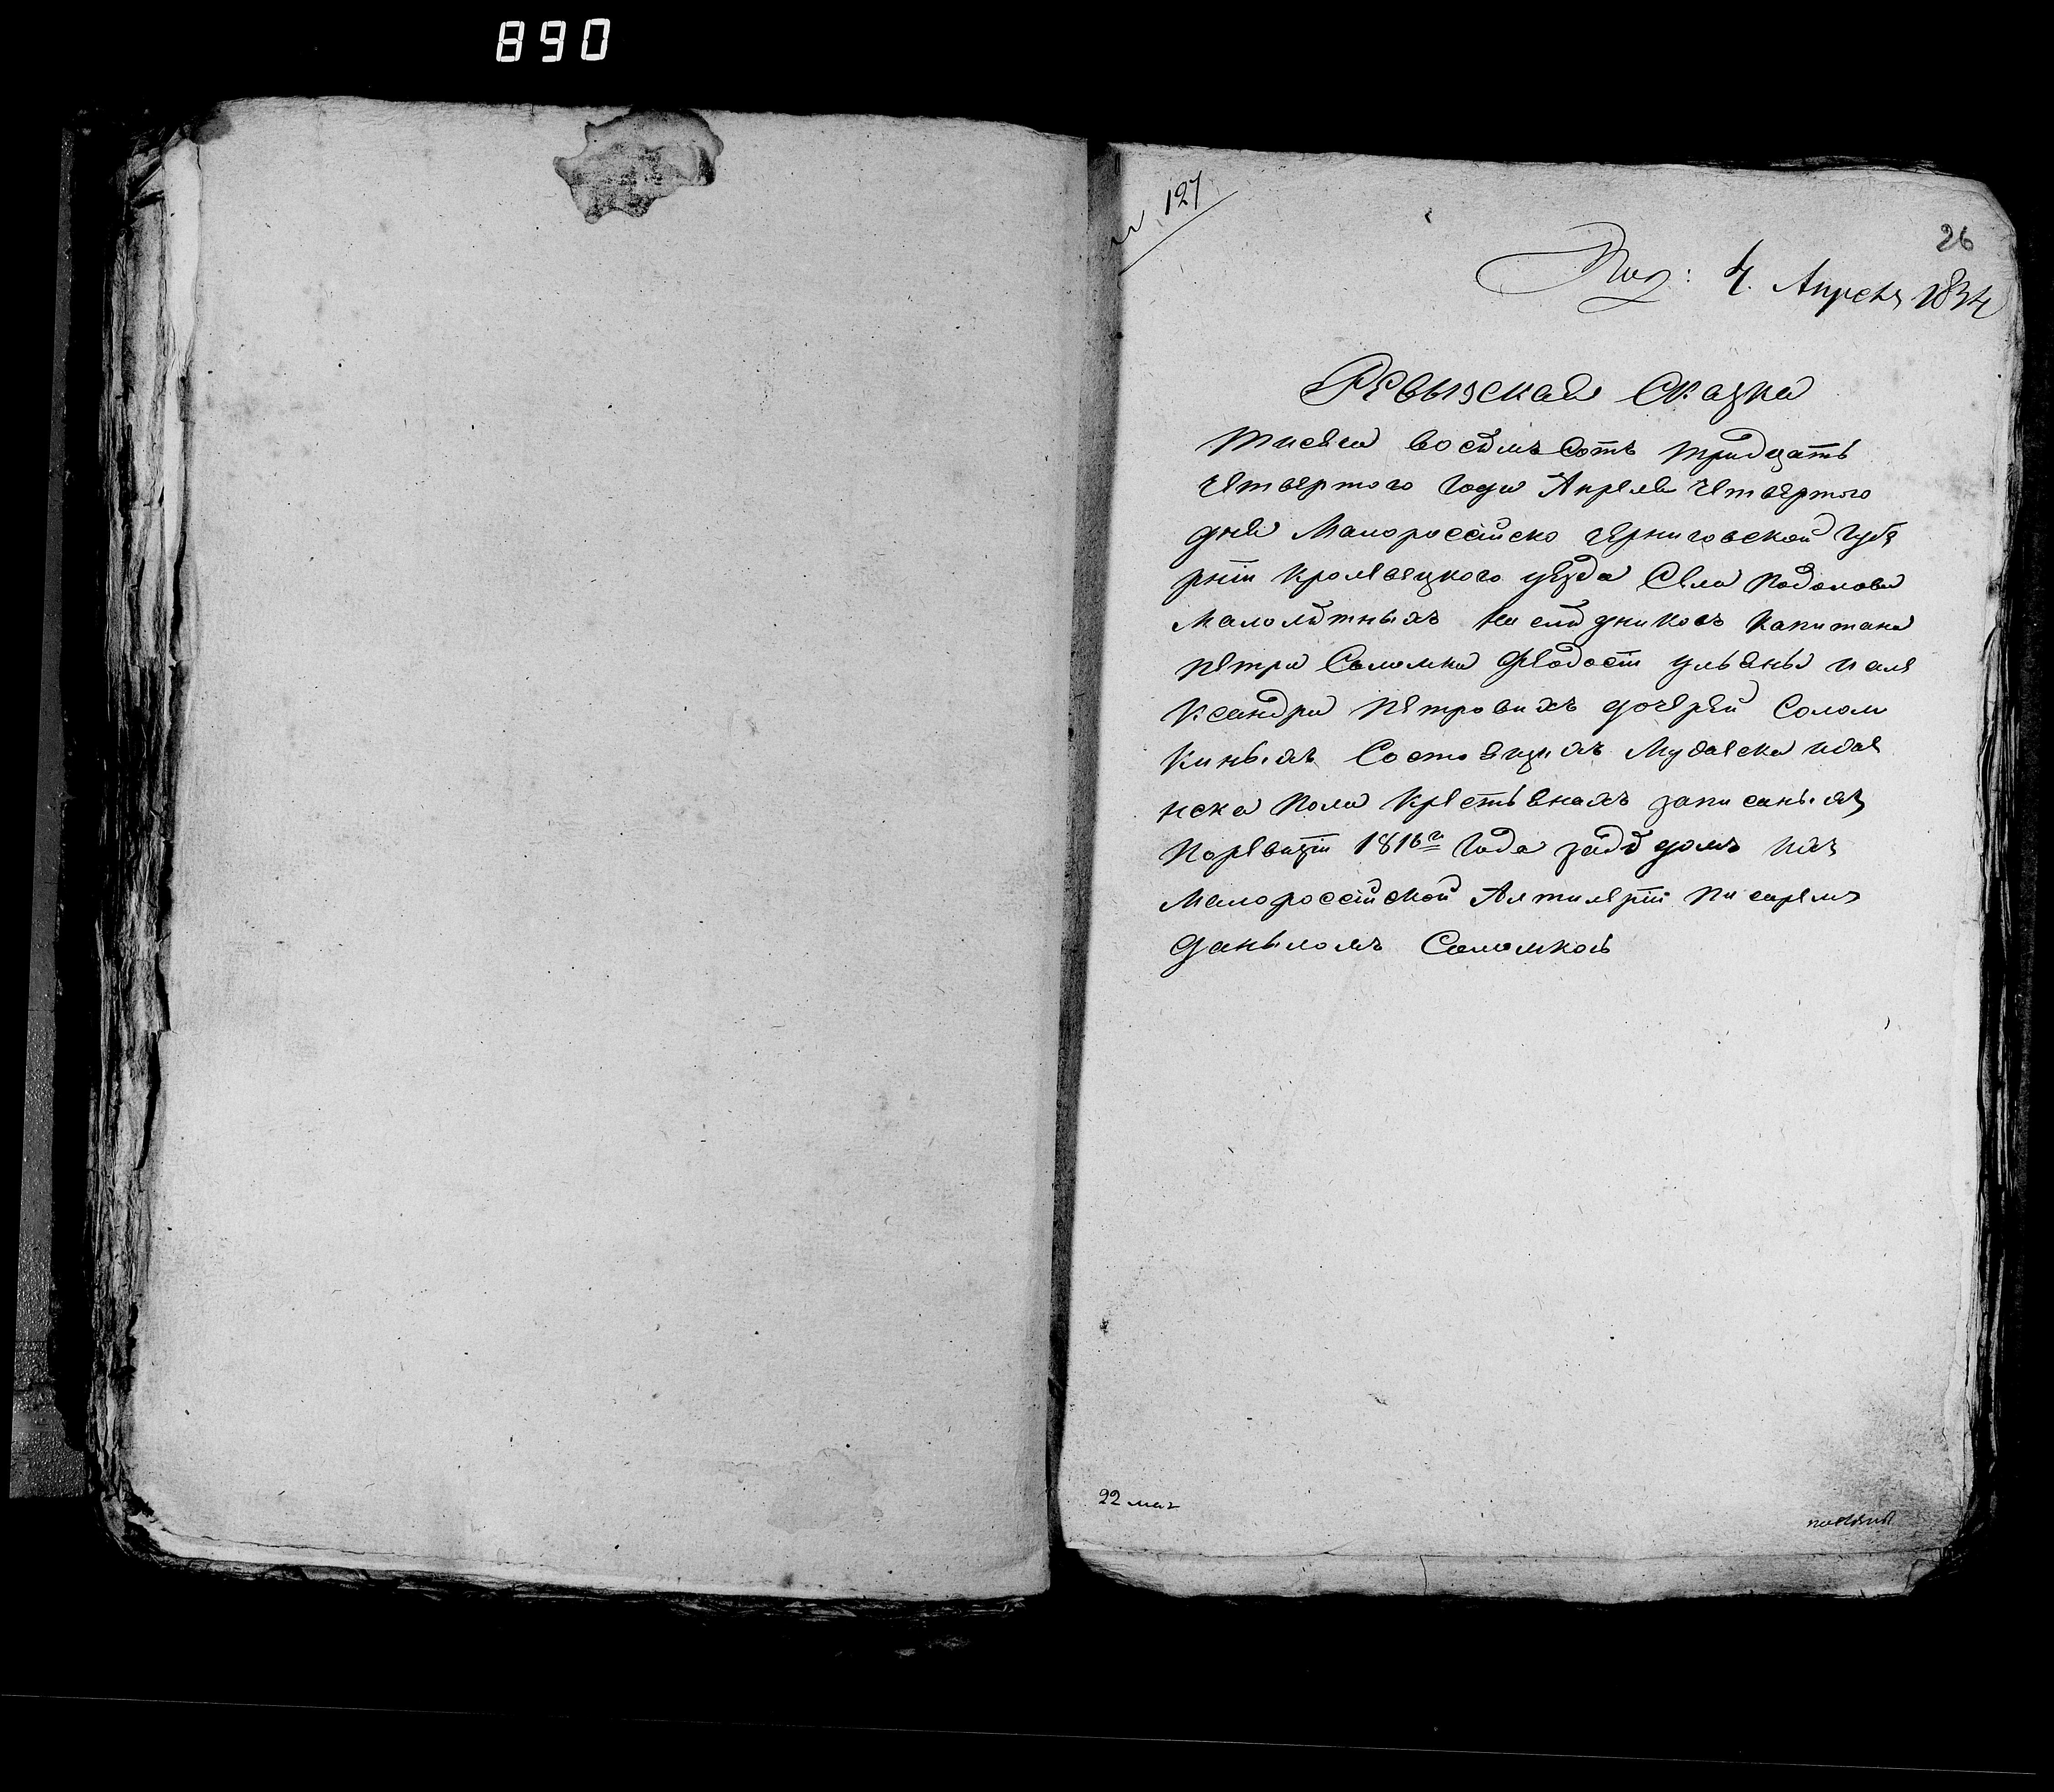 890
№ 127
26
Под: 4. Апреля 1834
Ревызская Сказка
тисяча восѣмъ Сотъ тридцать
Четвертого Года Апреля Четвертого
дня Малоросѣйско Черниговской Губе
рнiи Кролевецкого уезда Села Подолова
Малолѣтныхъ наслѣдниковъ Капитана
Петра Соломки Феодосiи ульяны и але
Ксандри Петровихъ дочерей Солом
Киныхъ Состоящихъ Мужеска иже
нска Пола Крестьянахъ записаныхъ
Поревизiи 1816го Года задѣдомъ ихъ
Малоросѣйской Артилерiи Писаремъ
Даныломъ Соломкою
22 мая